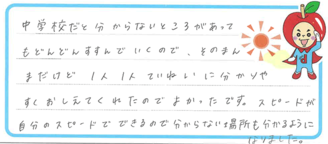 中学校だと分からないところがあって
もどんどんすすんでいくので、そのまん
まだけど 1人1人ていねいに分かりや
すくおしえてくれたのでよかったです。スピードが
自分のスピードでできるので分からない場所も分かるように
なりました。